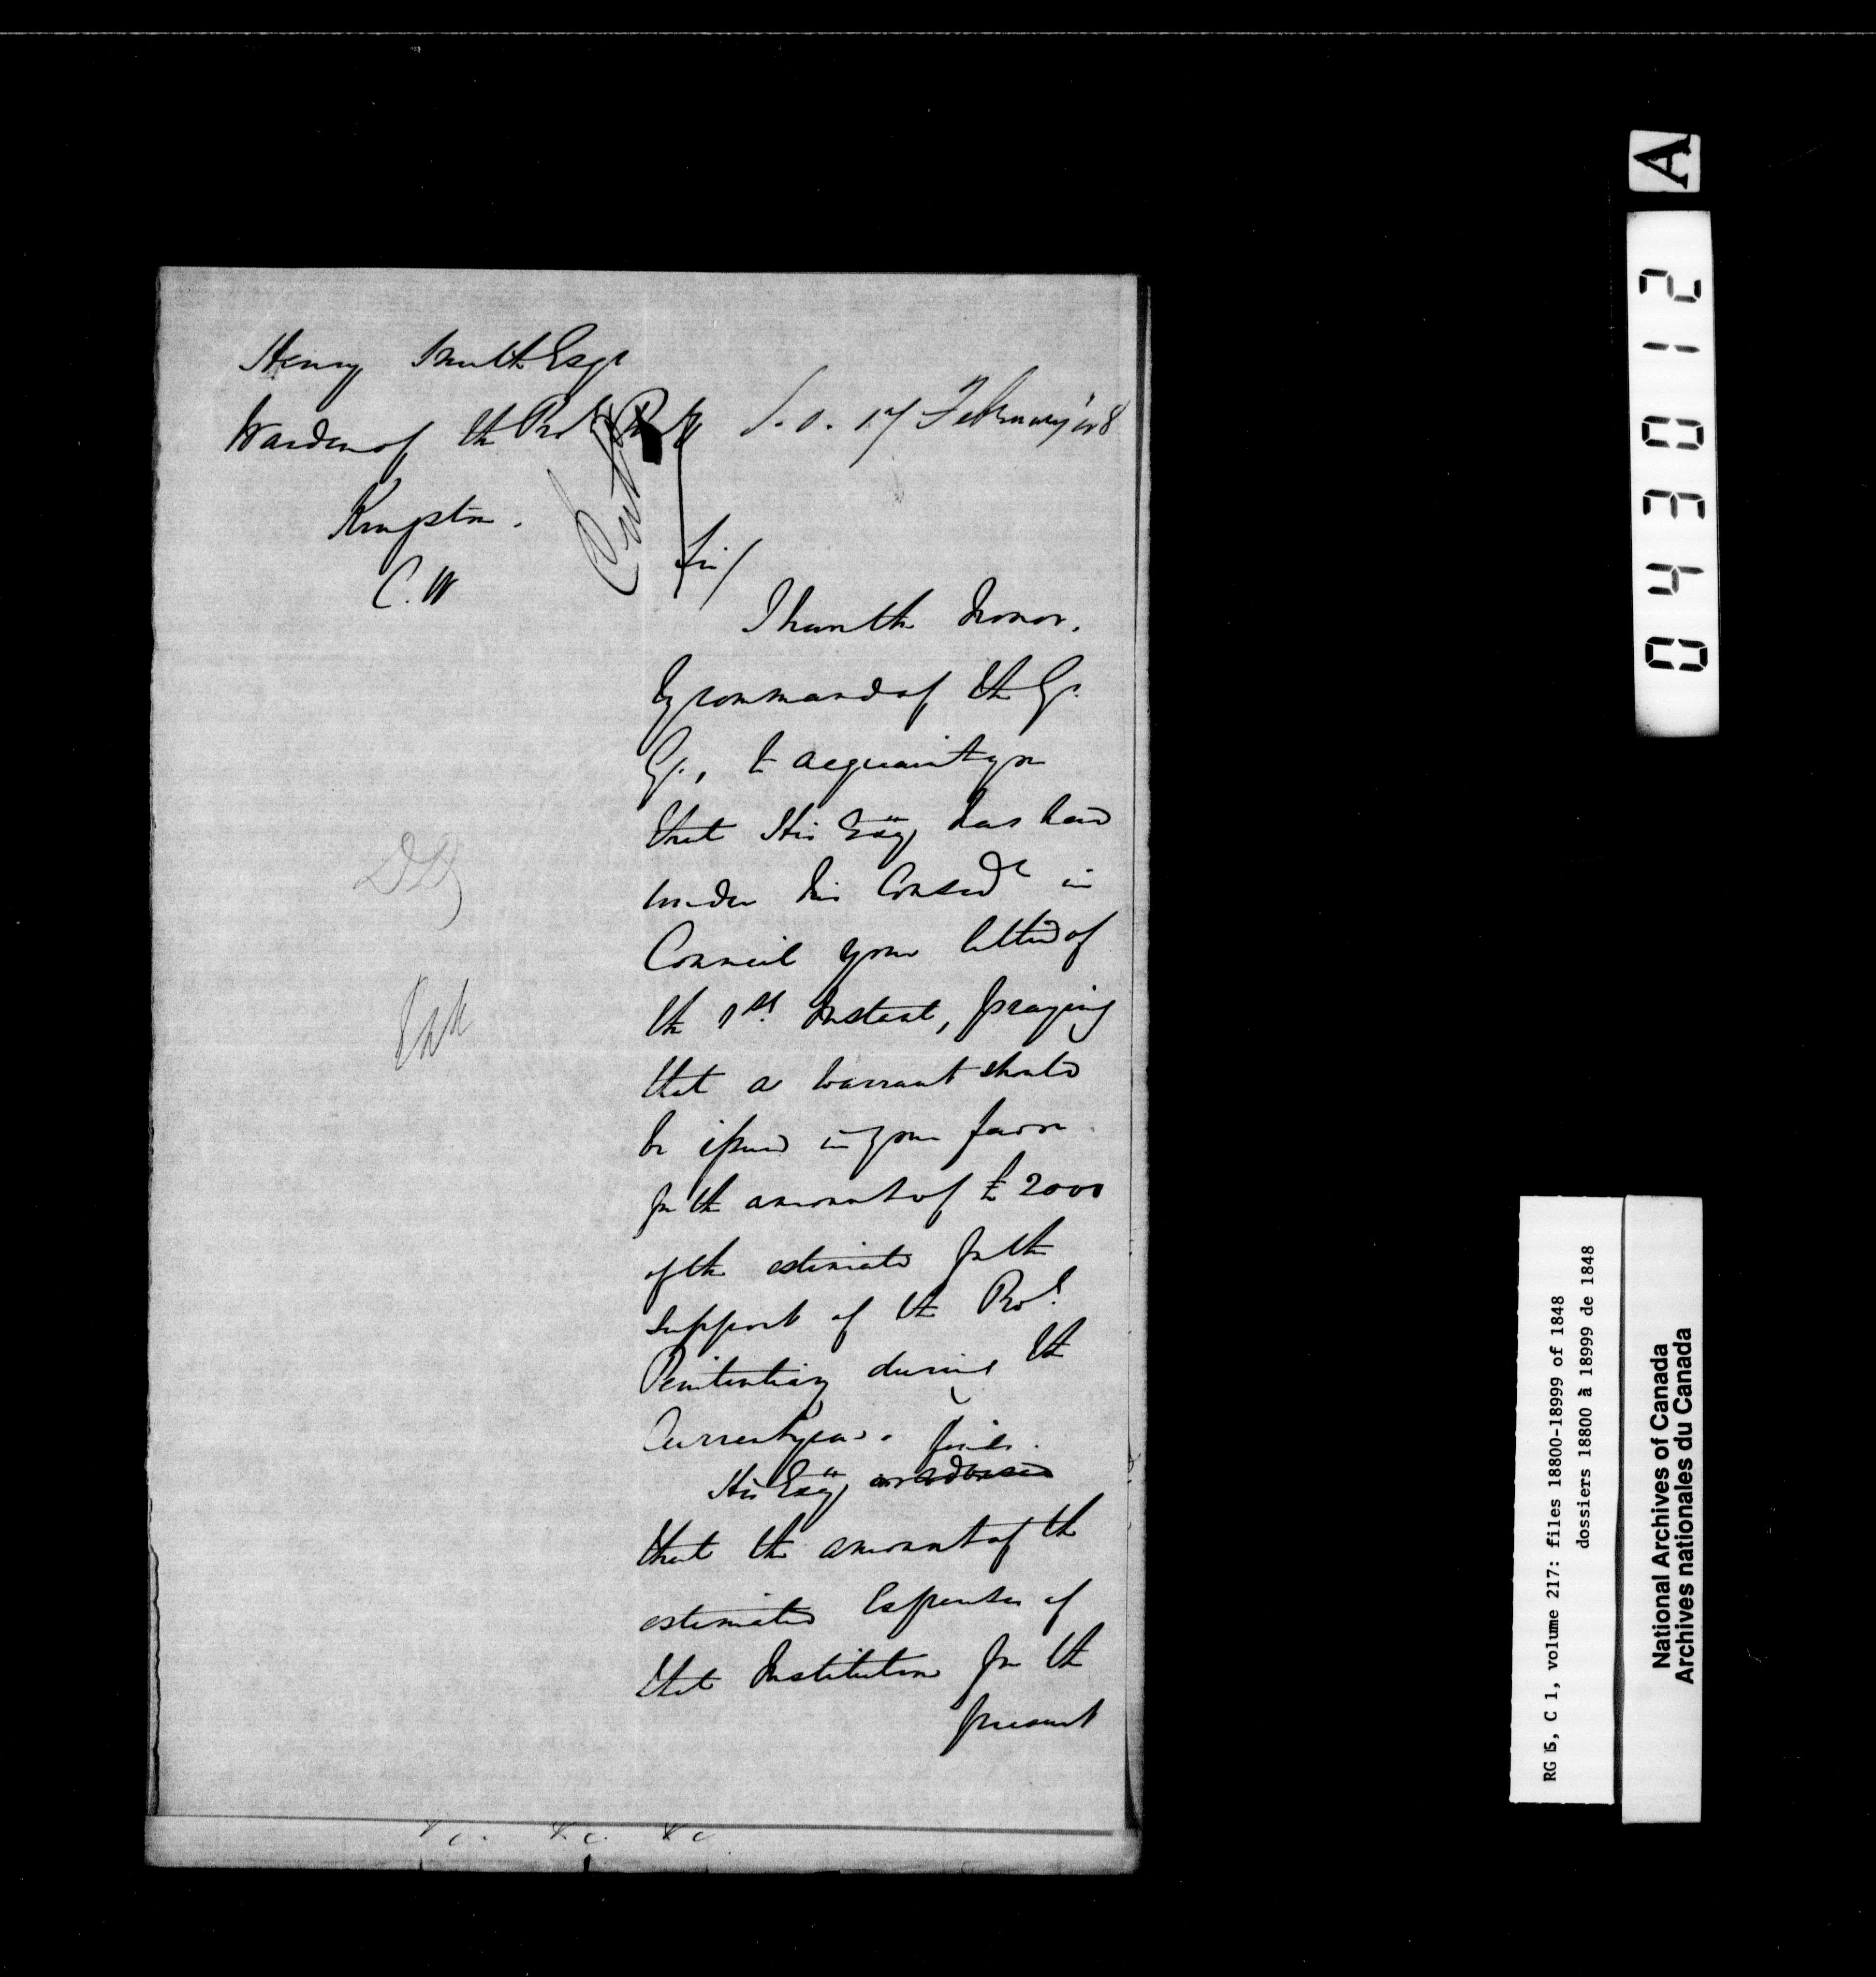 Henry Smith Esqr
Warden of the Prol Pen
Kingston.
C. W
S. O. 17 February '48
Entd
Sir/
I have the honor,
by command of the Gr.
Gl., to acquaint you
that His Excy has had
under his Consedn in
Council your letter of
the 1st Instant, praying
that a warrant should
be issued in your favor
for the amount of £2000
of the estimate for the
support of the Prol
Penitentiary during the
Current year.
His Excy finds
that the amount of the
estimated Expenses of
that Institution for the
present
&c. &c. &c
A
043012
RG 5, C 1, volume 217: files 18800-18999 of 1848
dossiers 18800 à 18999 de 1848
National Archives of Canada
Archives nationales du Canada